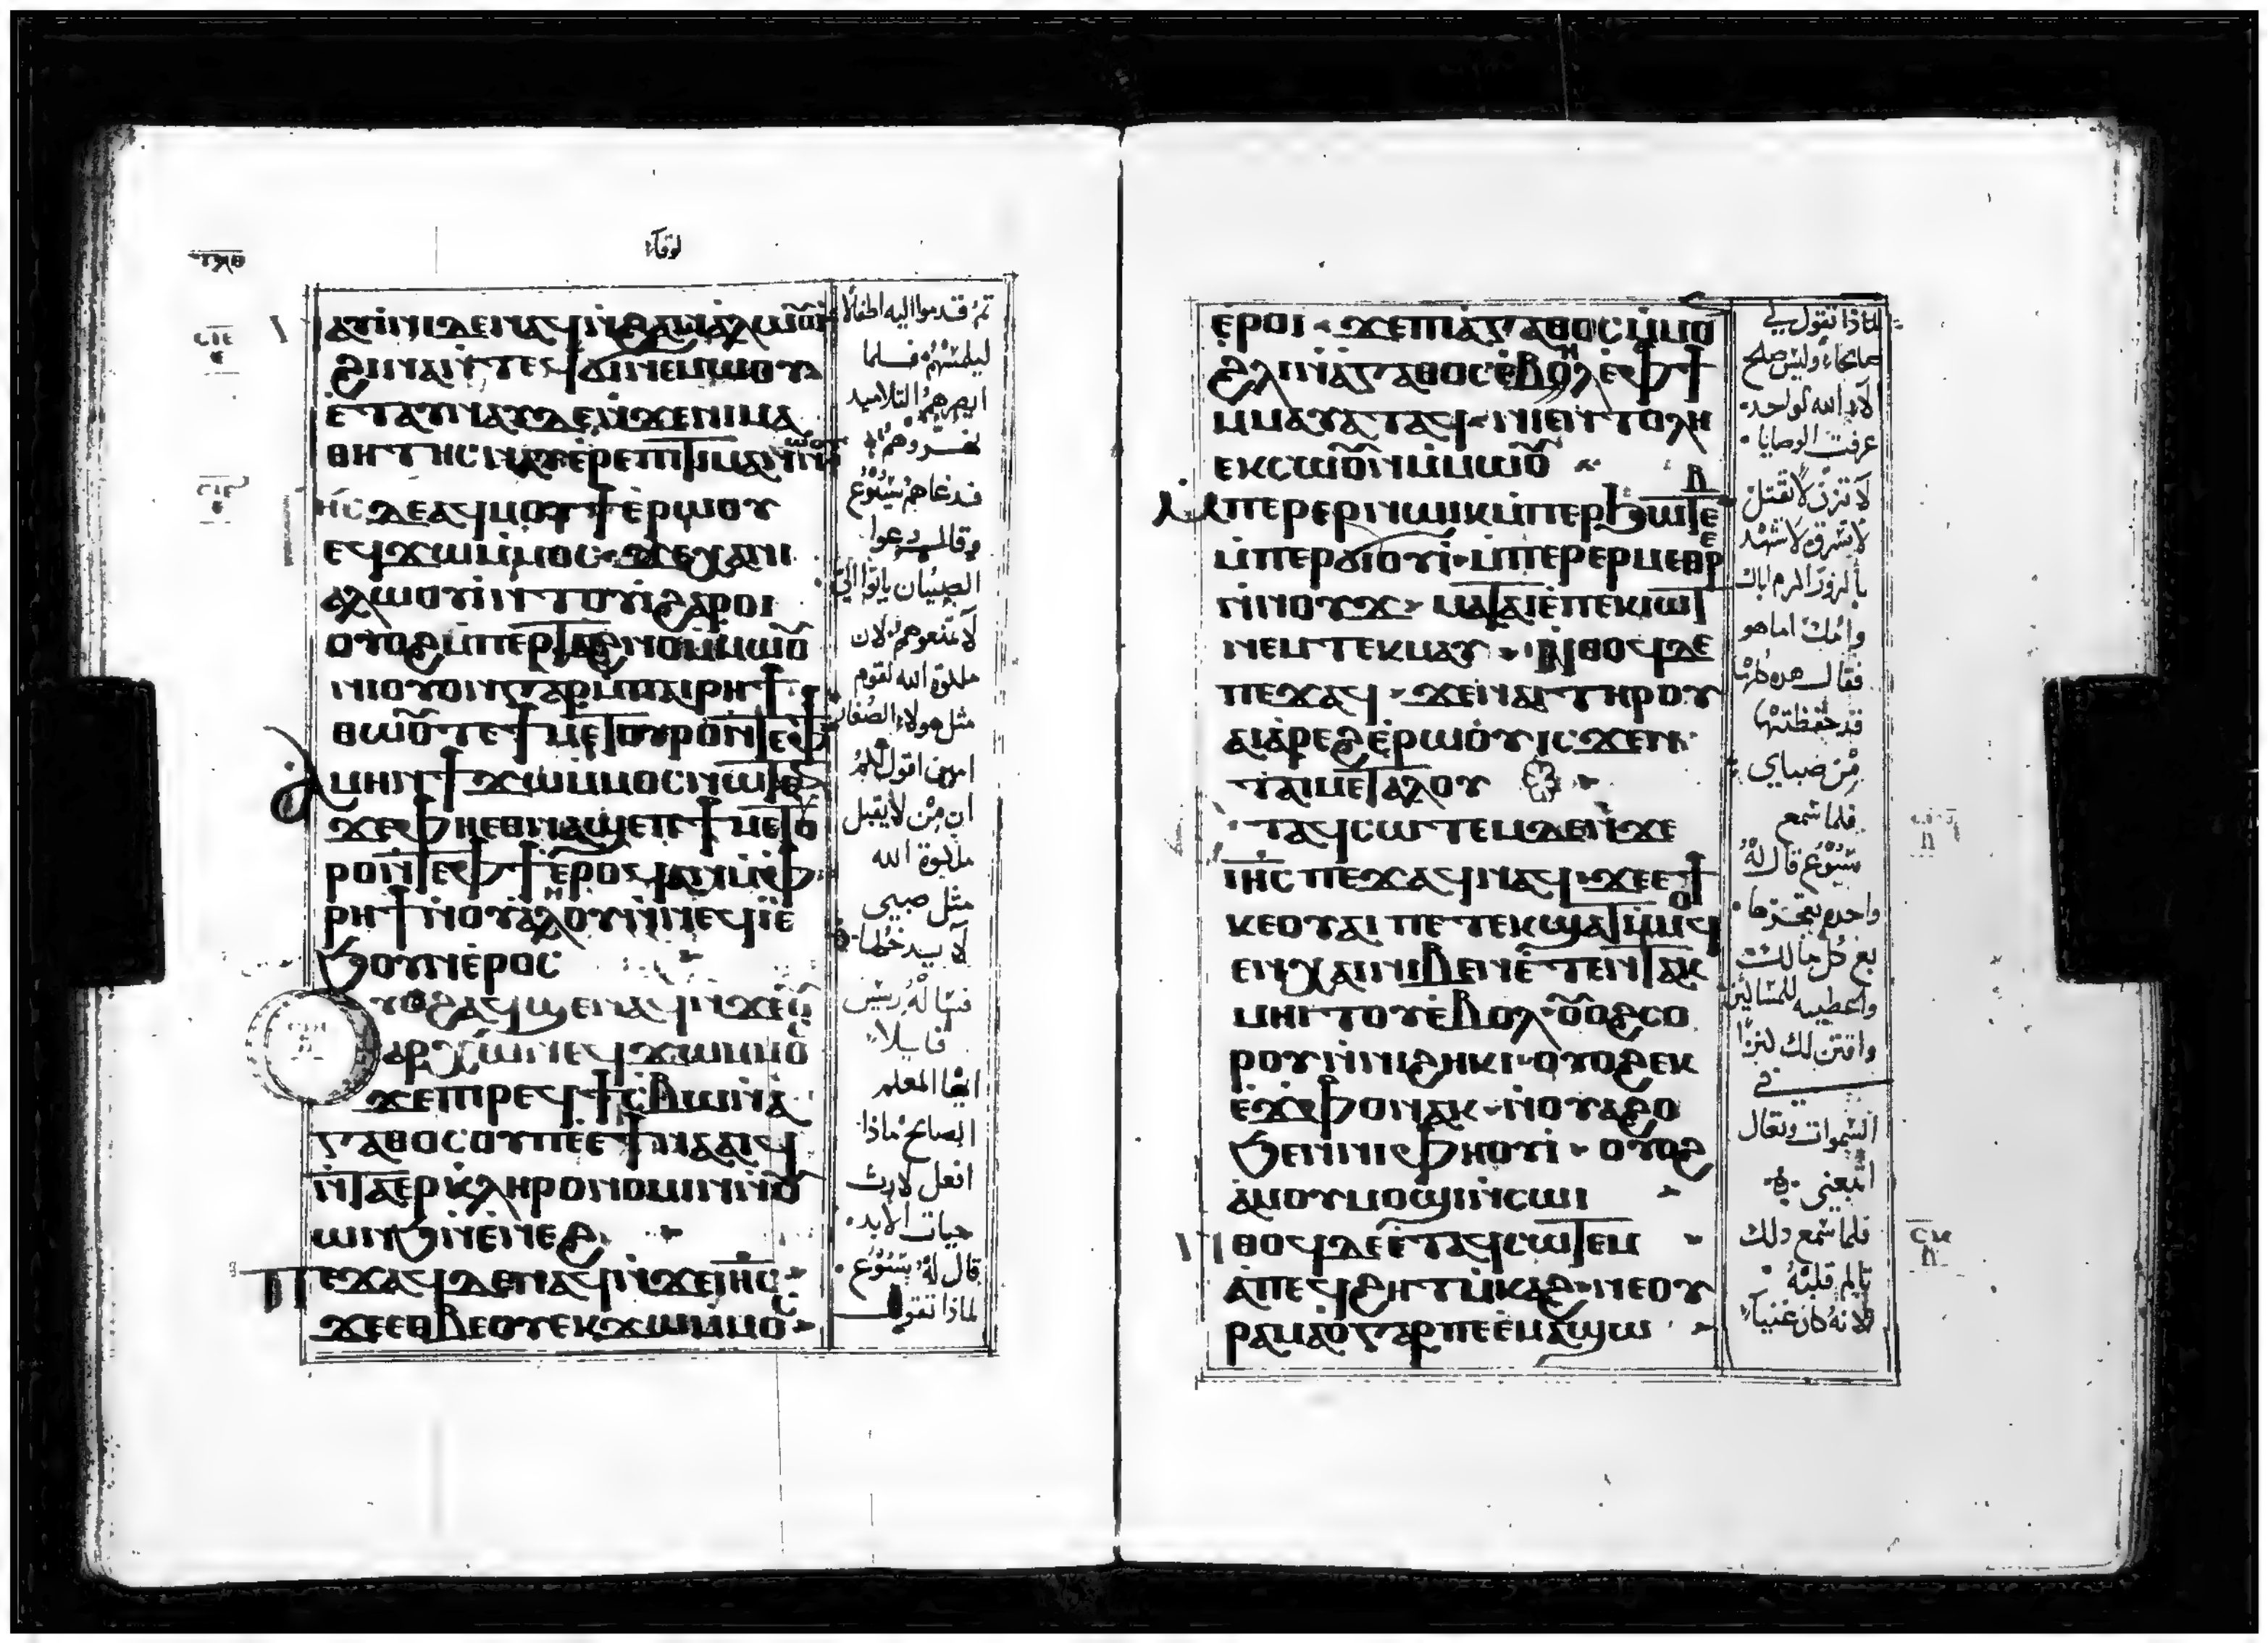 لوقا
ⲁⲩⲓⲛⲓⲇⲉⲛⲁϥⲛ̀ϩⲁⲛⲁⲗⲱⲟⲩⲓ̀
ϩⲓⲛⲁⲛ̀ⲧⲉϥϭⲓⲛⲉⲙⲱⲟⲩ
ⲉ̀ⲧⲁⲩⲛⲁⲩⲇⲉⲛ̀ϫⲉⲛⲓⲙⲁ
ⲑⲏⲧⲏⲥⲛⲁⲩⲉ̀ⲣⲉⲡⲓⲧⲓⲙⲁⲛⲱⲟⲩ
ⲓⲏ̅ⲥ̅ⲇⲉⲁϥⲙⲟⲩϯⲉ̀ⲣⲱⲟⲩ
ⲉϥϫⲱⲙ̀ⲙⲟⲥ·ϫⲉⲭⲁⲛⲓ
ⲁⲗⲱⲟⲩⲓ̀ⲛ̀ⲧⲟⲩⲓ̀ϩⲁⲣⲟⲓ
ⲟⲩⲟϩⲙ̀ⲡⲉⲣⲧⲁϩⲛⲟⲙ̀ⲙⲱⲟ̅
ⲛⲓⲟⲩⲟⲛⲅⲁⲣⲙ̀ⲡⲁⲓⲣⲏϯ
ⲑⲱⲟ̅ⲧⲉϯⲙⲉⲧⲟⲩⲣⲟⲛ̀ⲧⲉⲫϯ
ⲁ̀ⲙⲏⲛϯϫⲱⲙ̀ⲙⲟⲥⲛⲱⲧⲉⲛ
ϫⲉⲫⲏⲉⲑⲛⲁϣⲉⲡϯⲙⲉⲧⲟ
ⲣⲟⲛ̀ⲧⲉⲫϯⲉ̀ⲣⲟϥⲁⲛⲙ̀ⲫ
ⲣⲏϯⲛ̀ⲟⲩⲁ̀ⲗⲟⲩⲛ̀ⲛⲉϥⲓ̀ⲉ̀
ϧⲟⲩⲛⲉ̀ⲣⲟⲥ
ⲟⲩⲟϩⲁϥϣⲉⲛⲁϥⲛ̀ϫⲉⲟⲩ
ⲁⲣⲭⲱⲛⲉϥϫⲱⲙ̀ⲙⲟ̅
ϫⲉⲡⲓⲣⲉϥϯⲥⲃⲱⲛ̀ⲁ̀
ⲅⲁⲑⲟⲥⲟⲩⲡⲉⲉϯⲛⲁⲁⲓϥ
ⲛ̀ⲧⲁⲉⲣⲕ̀ⲗⲏⲣⲟⲛⲟⲙⲓⲛ̀ⲛⲟ̅
ⲱⲛϧⲛ̀ⲉ̀ⲛⲉϩ
ⲡⲉϫⲁϥⲇⲉⲛⲁϥⲛ̀ϫⲉⲓⲏ̅ⲥ̅
ϫⲉⲉⲑⲃⲉⲟⲩⲉⲕϫⲱⲙ̀ⲙⲟ
ثم قدموا اليه اطفالا
ليلمسهم فلما
ابصرهم التلاميد
فدعاهم يسوع
وقال دعوا
الصبيان ياتوا الي
لا تمنعوهم لان
ملكوة الله لقوم
مثل هولاء الصغار
امين اقول لكم
ان من لا يقبل
ملكوة الله
مثل صبي
لا يدخلها
فساله ريس
قايلا
ايها المعلم
الصالح ماذا
افعل لارث
حيات الابد
قال له يسوع
لماذا تقول
ⲉ̀ⲣⲟⲓ·ϫⲉⲡⲓⲁ̀ⲅⲁⲑⲟⲥⲙ̀ⲙⲟ
ϩⲗⲓⲛ̀ⲁ̀ⲅⲁⲑⲟⲥⲉ̀ⲃⲏⲗⲉ̀ⲫϯ
ⲙ̀ⲙⲁⲩⲁⲧⲁϥ·ⲛⲓⲉⲛⲧⲟⲗⲏ
ⲕⲥⲱⲟ̅ⲛⲙ̀ⲙⲱⲟ̅
ⲙ̀ⲡⲉⲣⲉⲣⲛⲱⲓⲕⲙ̀ⲡⲉⲣϧⲱⲧⲉⲃ
ⲙ̀ⲡⲉⲣϭⲓⲟⲩⲓ̀·ⲙ̀ⲡⲉⲣⲉⲣⲙⲉⲑⲣⲉ
ⲛ̀ⲛⲟⲩϫ·ⲙⲁⲧⲁⲓⲉ̀ⲡⲉⲕⲓⲱⲧ
ⲛⲉⲙⲧⲉⲕⲙⲁⲩ·ⲛ̀ⲑⲟϥⲇⲉ
ⲡⲉϫⲁϥ·ϫⲉⲛⲁⲓⲧⲏⲣⲟⲩ
ⲁⲓⲁ̀ⲣⲉϩⲉ̀ⲣⲱⲟⲩⲓⲥϫⲉⲛ
ⲧⲁⲙⲉⲧⲁⲗⲟⲩ
ⲉⲧⲁϥⲥⲱⲧⲉⲙⲇⲉⲛ̀ϫⲉ
ⲓⲏ̅ⲥ̅ⲡⲉϫⲁϥⲛⲁϥ·ϫⲉⲉⲧ
ⲕⲉⲟⲩⲁⲓⲡⲉⲧⲉⲕϣⲁⲧⲙ̀ⲙⲟϥ
ⲉⲛⲭⲁⲓⲛⲓⲃⲉⲛⲉ̀ⲧⲉⲛⲧⲁⲕ
ⲙⲏⲓⲧⲟⲩⲉ̀ⲃⲟⲗ·ⲟ̅ⲟϩⲥⲟ
ⲣⲟⲩⲛ̀ⲛⲓϩⲏⲕⲓ·ⲟⲩⲟϩⲉⲕ
ⲉ̀ϫⲫⲟⲛⲁⲕ·ⲛ̀ⲟⲩⲁϩⲟ
ϧⲉⲛⲛⲓⲫⲏⲟⲩⲓ̀·ⲟⲩⲟϩ
ⲁ̀ⲙⲟⲩⲙⲟϣⲓⲛ̀ⲥⲱⲓ
ⲛ̀ⲑⲟϥⲇⲉⲉ̀ⲧⲁϥⲥⲱⲧⲉⲙ
ⲁ̀ⲡⲉϥϩⲏⲧⲙ̀ⲕⲁϩ·ⲛⲉⲟⲩ
ⲣⲁⲙⲁⲟ̀ⲅⲁⲣⲡⲉⲉ̀ⲙⲁϣⲱ
لماذا تقول لي
صالحا وليس صالح
الا الله الواحد
عرفت الوصايا
لا تزن لا تقتل
لا تسرق لا تشهد
بالزور اكرم اباك
وامك اما هو
فقال هده كلها
قد حفظتها
من صباي
فلما سمع
يسوع قال له
واحده تعوزها
بع كل مالك
واعطيه للمساكين
واقتن لك كنزا
في
السموات وتعال
اتبعني
فلما سمع دلك
تالم قلبه
لانه كان غنيا